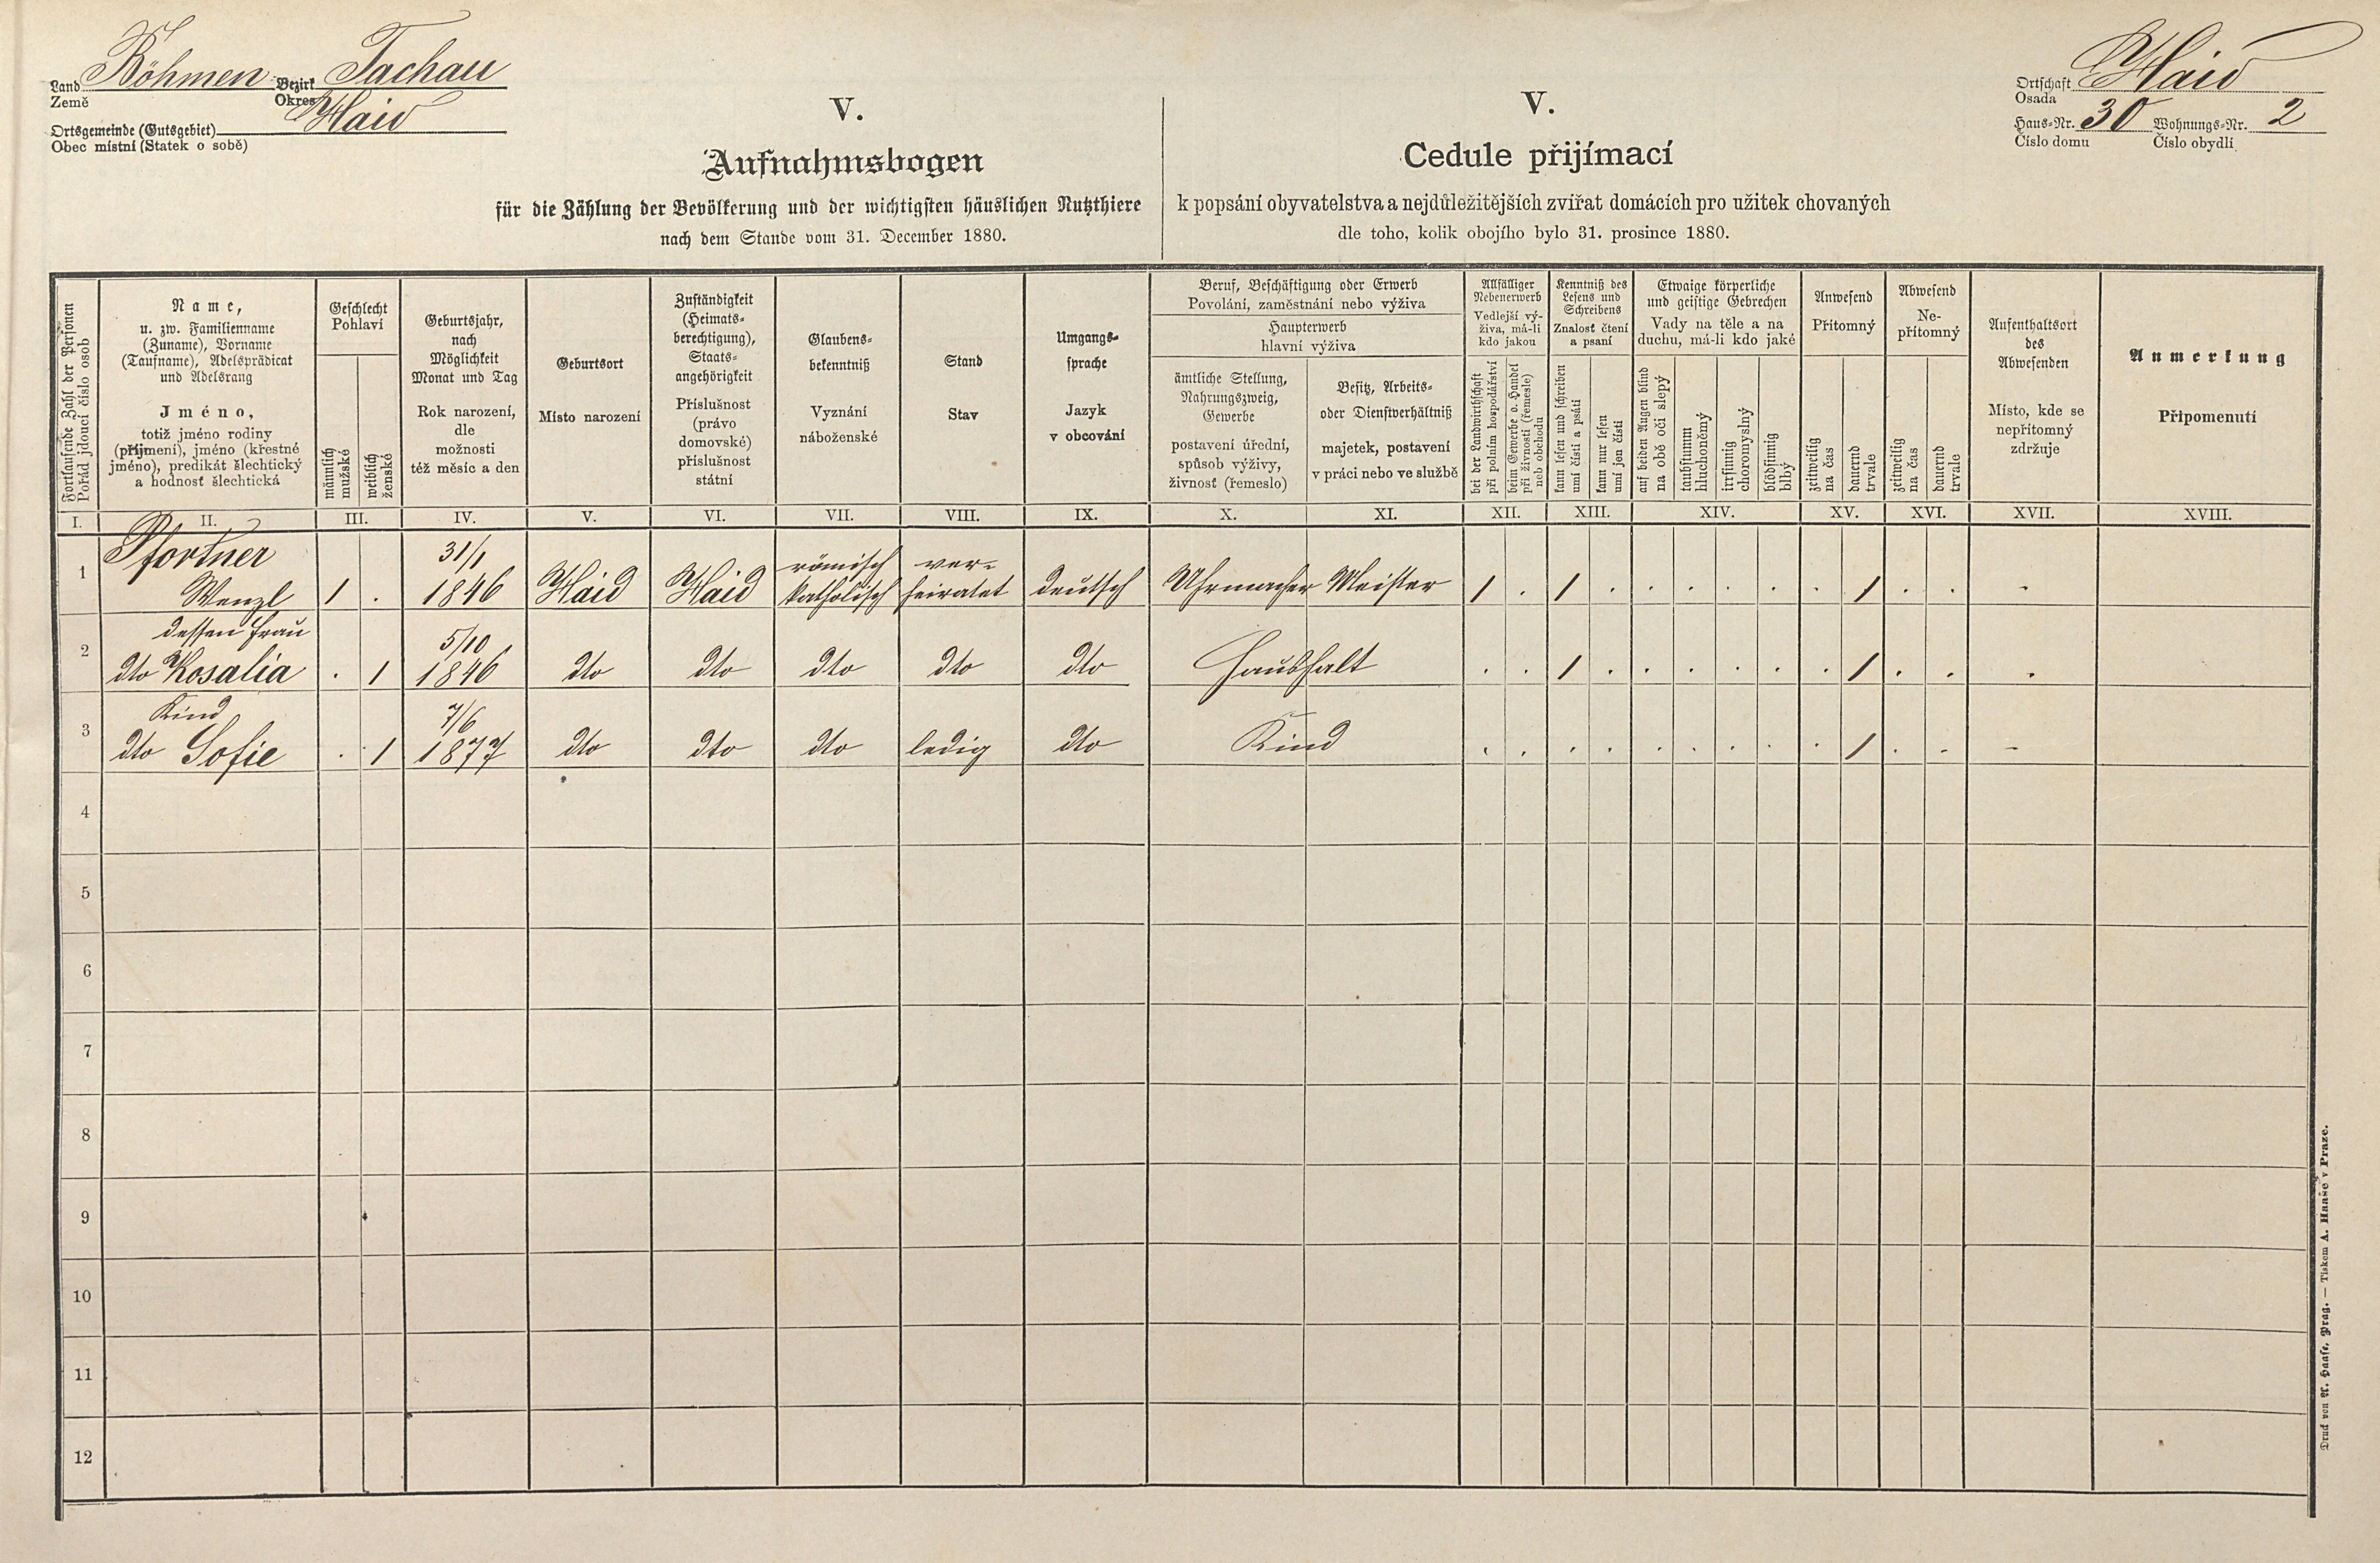 Land Böhmen Bezirk Tachau
Země Okres
Ortsgemeinde (Gutsgebiet) Haid
Obec místní (Statek o sobě)
V.
Aufnahmsbogen
für die Zählung der Bevölkerung und der wichtigsten häuslichen Nutzthiere
nach dem Stande vom 31. December 1880.
V.
Cedule přijímací
k popsání obyvatelstva a nejdůležitějších zvířat domácích pro užitek chovaných
dle toho, kolik obojího bylo 31. prosince 1880.
Ortschaft Haid
Osada
Haus-Nr. 30 Wohnungs-Nr. 2
Číslo domu Číslo obydlí
Fortlaufende Zahl der Personen
Pořád jdoucí číslo osob
Name,
u. zw. Familienname
(Zuname), Vorname
(Taufname), Adelsprädicat
und Adelsrang
Jméno,
totiž jméno rodiny
(příjmení), jméno (křestné
jméno), predikát šlechtický
a hodnosť šlechtická
Geschlecht
Pohlaví
männlich
mužské
weiblich
ženské
Geburtsjahr,
nach
Möglichkeit
Monat und Tag
Rok narození,
dle
možnosti
též měsíc a den
Geburtsort
Místo narození
Zuständigkeit
(Heimats-
berechtigung),
Staats-
angehörigkeit
Příslušnost
(právo
domovské)
příslušnost
státní
Glaubens-
bekenntniß
Vyznání
náboženské
Stand
Stav
Umgangs-
sprache
Jazyk
v obcování
Beruf, Beschäftigung oder Erwerb
Povolání, zaměstnání nebo výživa
Haupterwerb
hlavní výživa
ämtliche Stellung,
Nahrungszweig,
Gewerbe
postavení úřední,
spůsob výživy,
živnosť (řemeslo)
Besitz, Arbeits-
oder Dienstverhältniß
majetek, postavení
v práci nebo ve službě
Allfälliger
Nebenerwerb
Vedlejší vý-
živa, má-li
kdo jakou
bei der Landwirthschaft
při polním hospodářství
beim Gewerbe o. Handel
při živnosti (řemesle)
neb obchodu
Kenntniß des
Lesens und
Schreibens
Znalosť čtení
a psaní
kann lesen und schreiben
umí čísti a psáti
kann nur lesen
umí jen čísti
Etwaige körperliche
und geistige Gebrechen
Vady na těle a na
duchu, má-li kdo jaké
auf beiden Augen blind
na obě oči slepý
taubstumm
hluchoněmý
irrsinnig
choromyslný
blödsinnig
blbý
Anwesend
Přítomný
zeitweilig
na čas
dauernd
trvale
Abwesend
Ne-
přítomný
zeitweilig
na čas
dauernd
trvale
Aufenthaltsort
des
Abwesenden
Místo, kde se
nepřítomný
zdržuje
Anmerkung
Připomenutí
I. II. III. IV. V. VI. VII. VIII. IX. X. XI. XII. XIII. XIV. XV. XVI. XVII. XVIII.
Pfortner 31/1 römisch ver-
1 Wenzl 1 . 1846 Haid Haid katholisch heiratet deutsch Uhrmacher Meister 1 . 1 . . . . . . 1 . . -
dessen Frau 5/10
2 dto Rosalia . 1 1846 dto dto dto dto dto Haushalt . . 1 . . . . . . 1 . . .
Kind 7/6
3 dto Sofie . 1 1877 dto dto dto ledig dto Kind . . . . . . . . . 1 . . -
4
5
6
7
8
9
10
11
12
Druck von A. Haase, Prag. — Tiskem A. Haaše v Praze.